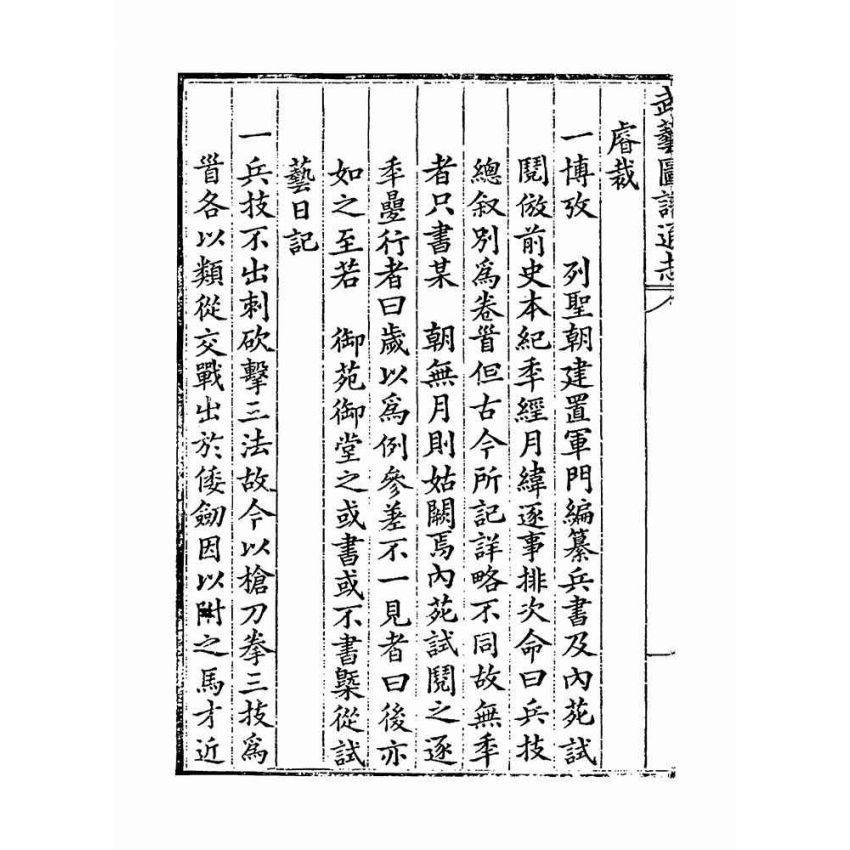 武藝圖譜通志
睿裁
一博攷 列聖朝建置軍門編纂兵書及內苑試
閱倣前史本紀秊經月緯逐事排次命曰兵技
總叙別爲卷首但古今所記詳略不同故無秊
者只書某 朝無月則姑闕焉內苑試閱之逐
秊疊行者曰歲以爲例參差不一見者曰後亦
如之至若 御苑御堂之或書或不書槩從試
藝日記
一兵技不出刺砍擊三法故今以槍刀拳三技爲
首各以類從交戰出於倭劒因以附之馬才近